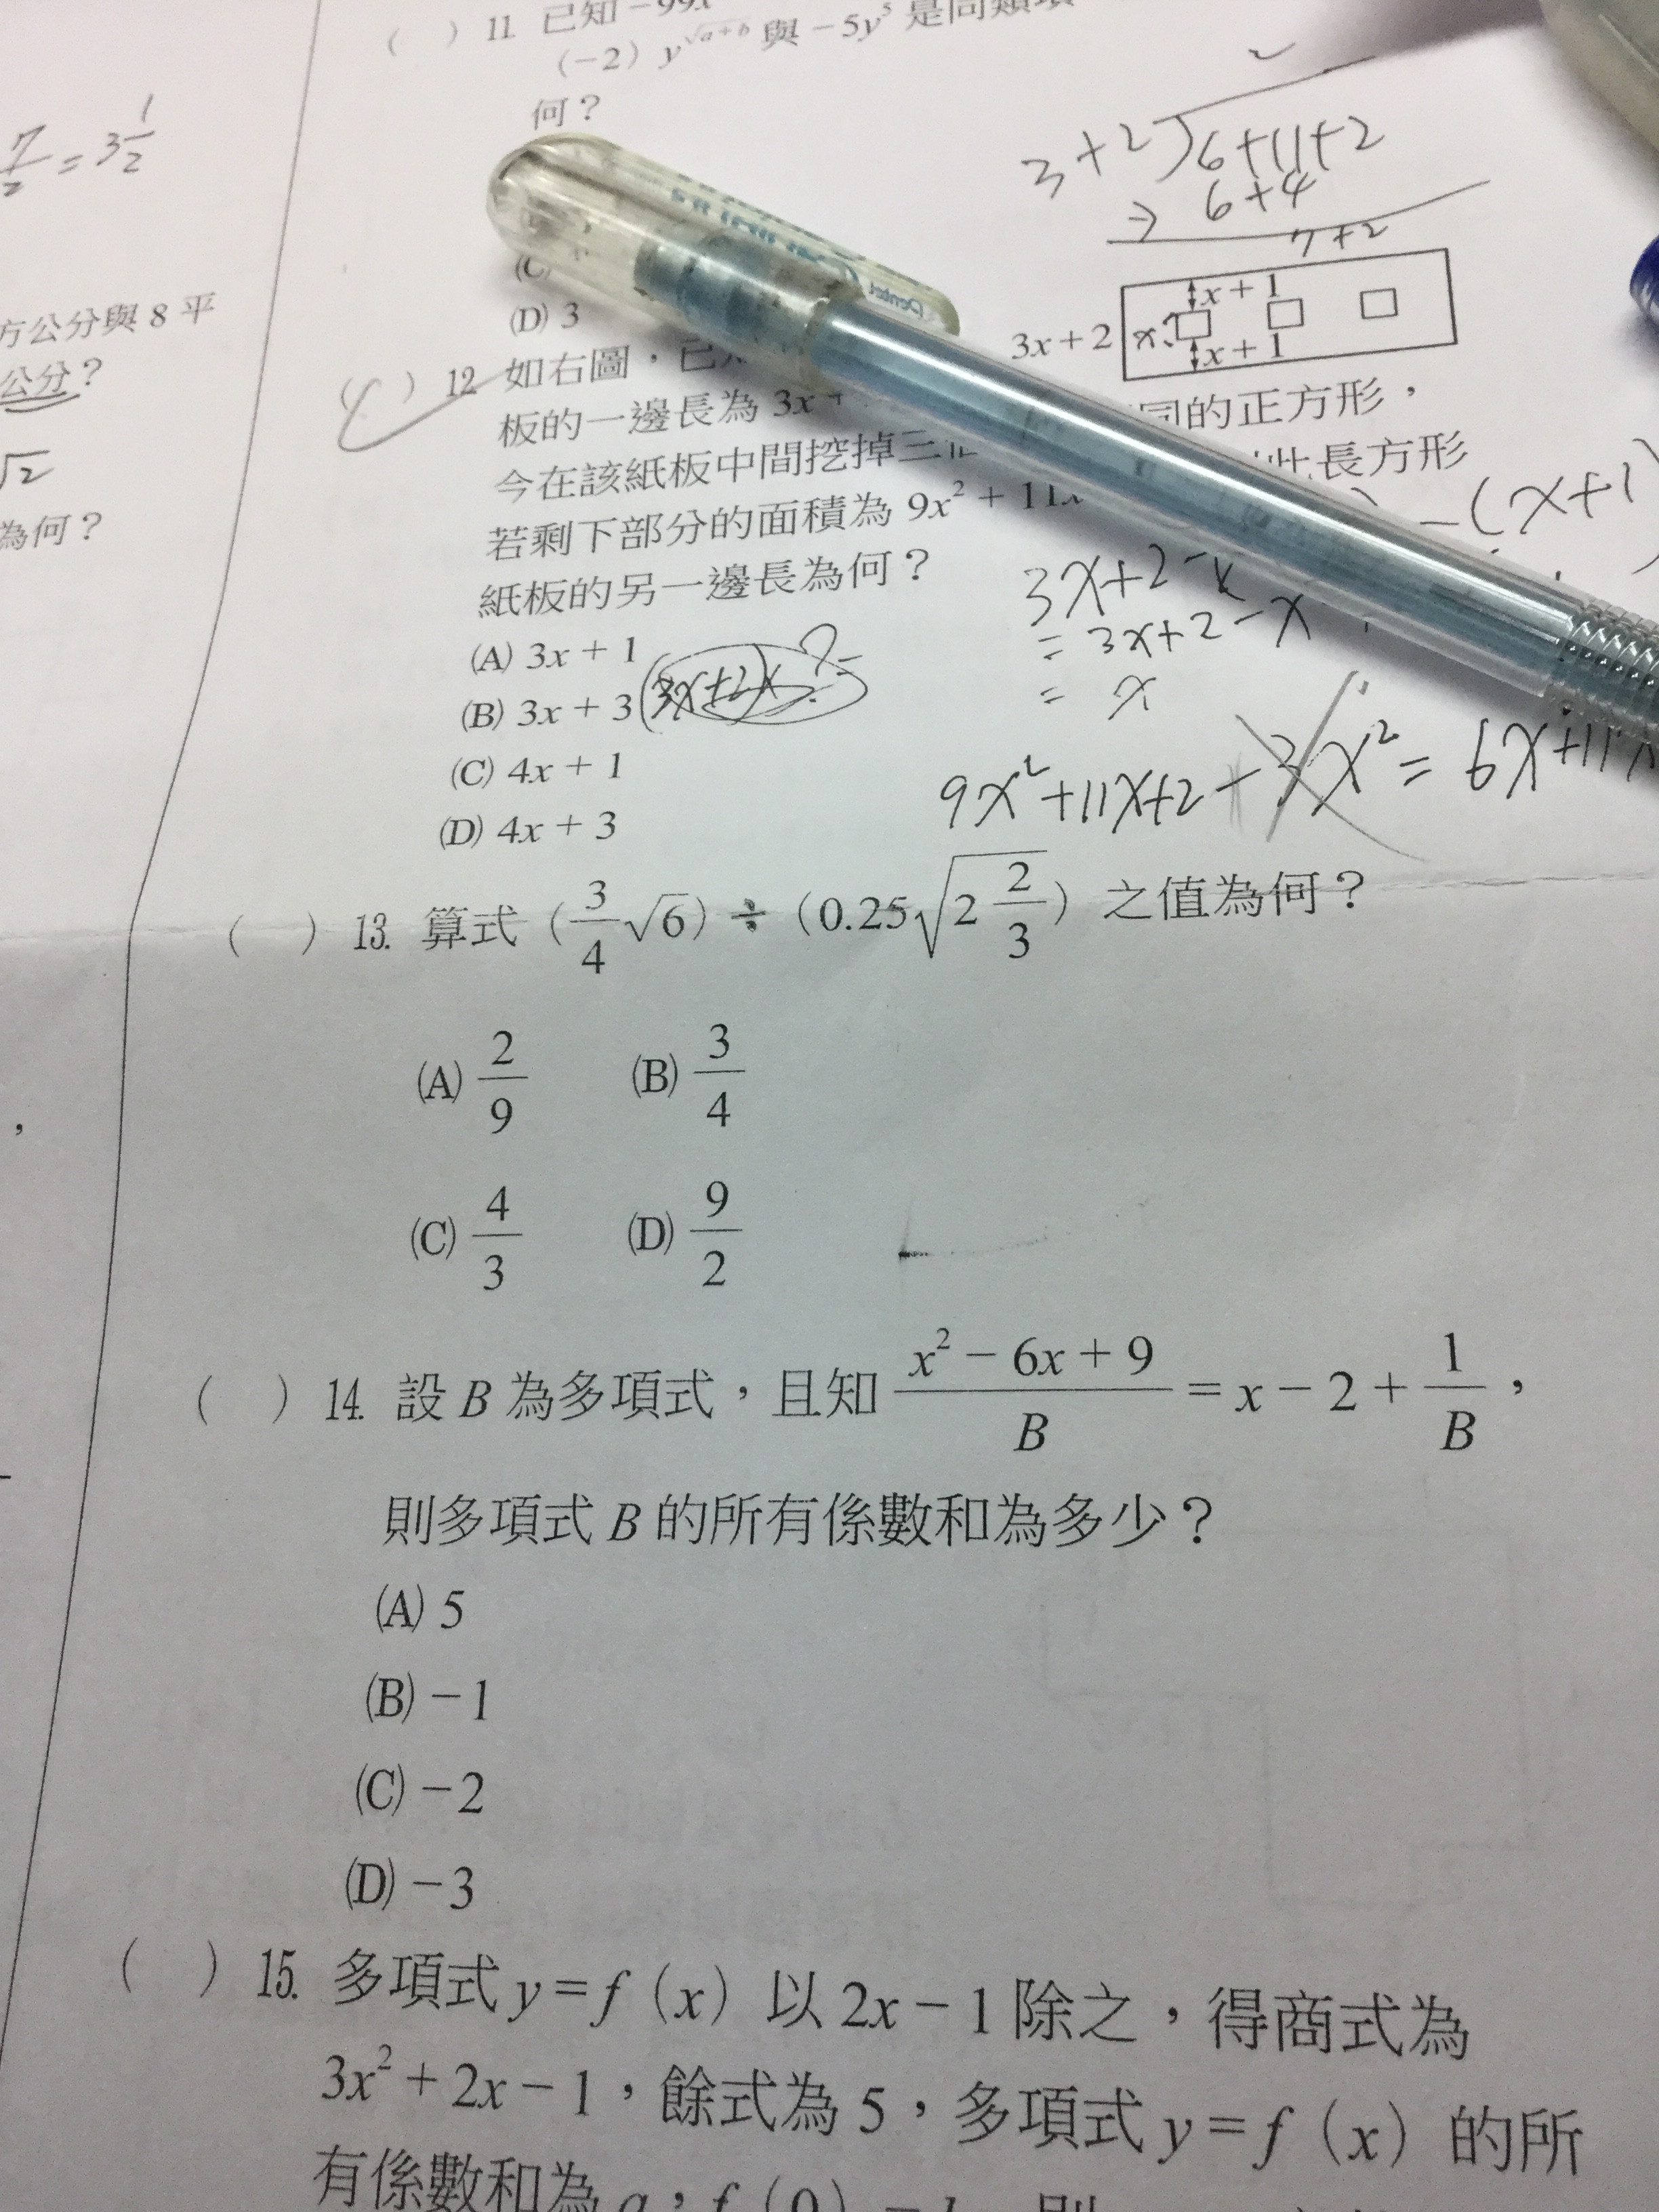 ( ) 11. 已知 -99x
(-2) y^√(a+b) 與 -5y⁵ 是同類項
何？
(D) 3
3+2)6+11+2
6+4
7+2
7/2 = 3 1/2
方公分與 8 平
公分？
√2
為何？
x + 1
3x + 2 x
x + 1
( ) 12 如右圖，已
板的一邊長為 3x + 同的正方形，
今在該紙板中間挖掉三 此長方形
若剩下部分的面積為 9x² + 11x
紙板的另一邊長為何？
(A) 3x + 1
(B) 3x + 3
(C) 4x + 1
(D) 4x + 3
(3x+2)x ?=
-(x+1)
3x+2-x
= 3x+2-x
= x
9x²+11x+2-3x² = 6x+11x
( ) 13. 算式 (3/4 √6) ÷ (0.25√(2 2/3)) 之值為何？
(A) 2/9 (B) 3/4
(C) 4/3 (D) 9/2
( ) 14. 設 B 為多項式，且知 (x² - 6x + 9)/B = x - 2 + 1/B，
則多項式 B 的所有係數和為多少？
(A) 5
(B) -1
(C) -2
(D) -3
( ) 15. 多項式 y = f (x) 以 2x - 1 除之，得商式為
3x² + 2x - 1，餘式為 5，多項式 y = f (x) 的所
有係數和為 a，f (0) = b，則
Pentel